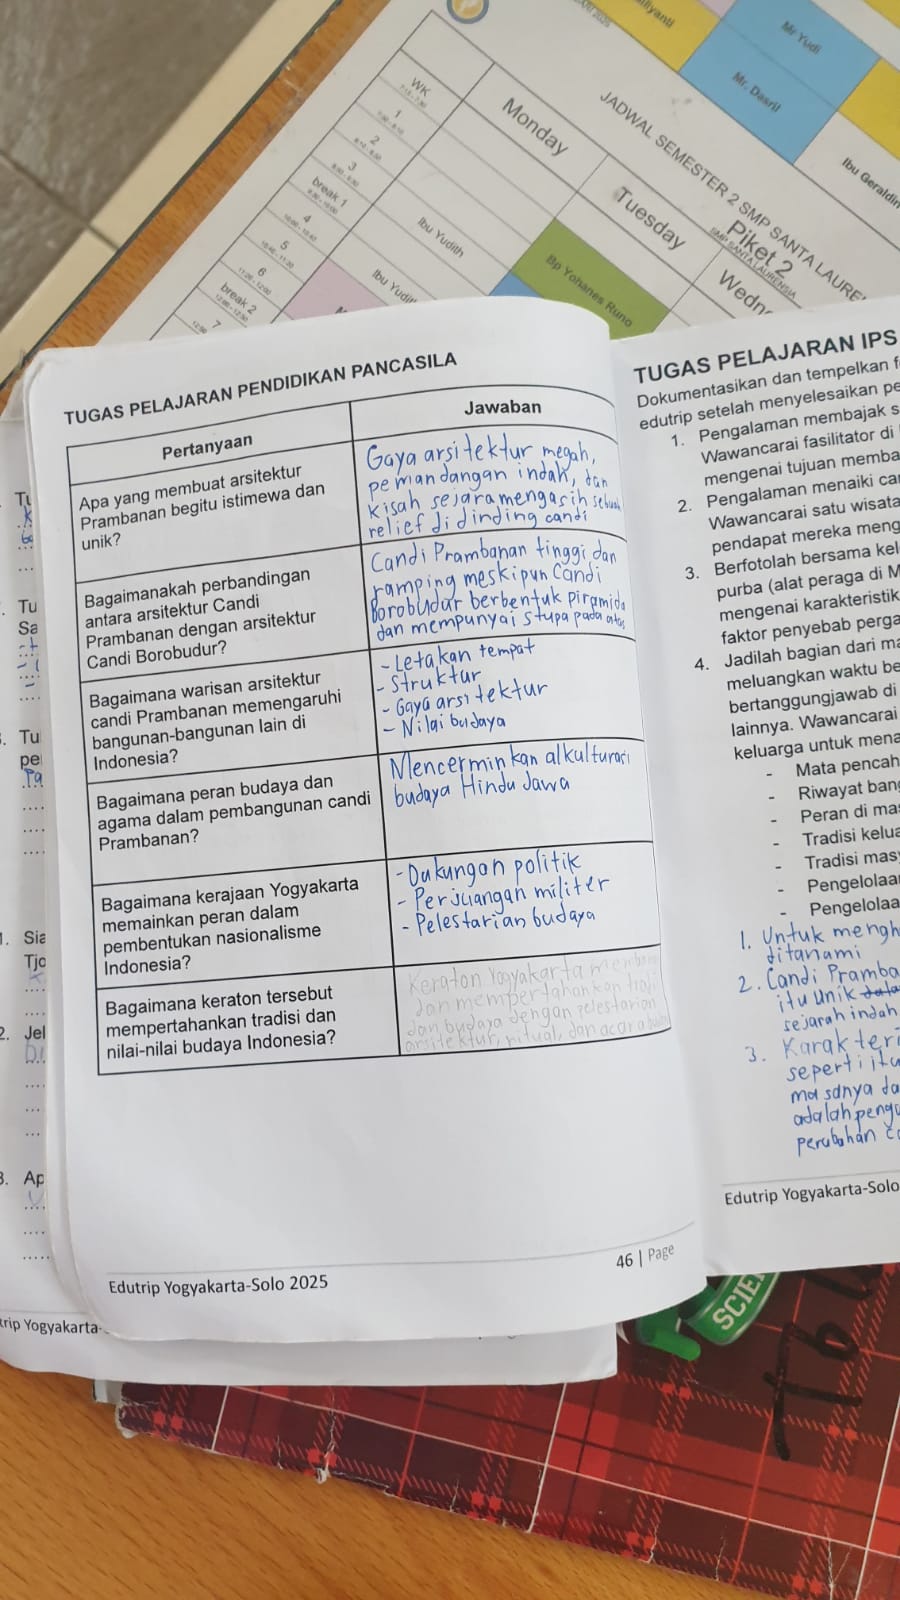 Mr Yudi
Mr. Dasril
Ibu Geraldin
JADWAL SEMESTER 2 SMP SANTA
Piket 2
SMP SANTA LAURENSIA
WK
Monday
Tuesday
1
2
3
break 1
4
5
6
break 2
7
Ibu Yudith
Bp Yohanes Runo
TUGAS PELAJARAN PENDIDIKAN PANCASILA
Pertanyaan
Jawaban
Apa yang membuat arsitektur
Prambanan begitu istimewa dan
unik?
Gaya arsitektur megah,
pemandangan indah, dan
kisah sejara mengasih
relief di dinding candi
Bagaimanakah perbandingan
antara arsitektur Candi
Prambanan dengan arsitektur
Candi Borobudur?
Candi Prambanan tinggi dan
ramping meskipun Candi
Borobudur berbentuk piramida
dan mempunyai stupa pada atas
Bagaimana warisan arsitektur
candi Prambanan memengaruhi
bangunan-bangunan lain di
Indonesia?
- Letakan tempat
- Struktur
- Gaya arsitektur
- Nilai budaya
Bagaimana peran budaya dan
agama dalam pembangunan candi
Prambanan?
Mencerminkan alkulturasi
budaya Hindu Jawa
Bagaimana kerajaan Yogyakarta
memainkan peran dalam
pembentukan nasionalisme
Indonesia?
- Dukungan politik
- Perjuangan militer
- Pelestarian budaya
Bagaimana keraton tersebut
mempertahankan tradisi dan
nilai-nilai budaya Indonesia?
Keraton Yogyakarta
dan mempertahankan
dan budaya dengan pelestarian
arsitektur, ritual, dan acara
46 | Page
Edutrip Yogyakarta-Solo 2025
TUGAS PELAJARAN IPS
Dokumentasikan dan tempelkan
edutrip setelah menyelesaikan
1. Pengalaman membajak
Wawancarai fasilitator di
mengenai tujuan
2. Pengalaman menaiki
Wawancarai satu wisata
pendapat mereka
3. Berfotolah bersama
purba (alat peraga di
mengenai karakteristik
faktor penyebab
4. Jadilah bagian dari
meluangkan waktu
bertanggungjawab di
lainnya. Wawancarai
keluarga untuk
- Mata
- Riwayat
- Peran di
- Tradisi
- Tradisi
- Pengelolaa
- Pengelolaa
1. Untuk
ditanami
2. Candi
itu unik
sejarah indah
3.
seperti itu
adalah
perubahan
Edutrip Yogyakarta-Solo
Tu
Sa
Tu
1. Sia
Tjo
2. Jel
3. Ap
trip Yogyakarta-